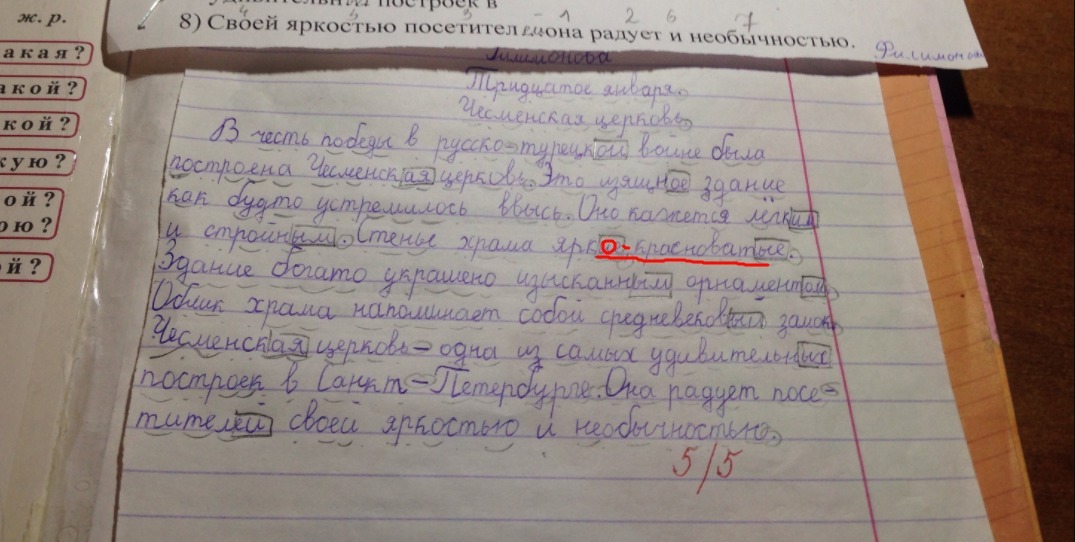 ж. р.
акая?
акой?
кой?
кую?
ой?
ою?
й?
построек в
4 5 3 – 1 2 6 7
8) Своей яркостью посетителеиона радует и необычностью.
Филимонова
Филимонова
Тридцатое января.
Чесменская церковь.
В честь победы в русско-турецкой войне была
построена Чесменская церковь. Это изящное здание
как будто устремилось ввысь. Оно кажется лёгким
и стройным. Стены храма ярко-красноватые.
Здание богато украшено изысканным орнаментом.
Облик храма напоминает собой средневековый замок.
Чесменская церковь – одна из самых удивительных
построек в Санкт-Петербурге. Она радует посе-
тителей своей яркостью и необычностью.
5/5